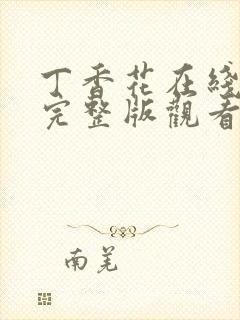 丁香花在綫
完整版觀看
南羌